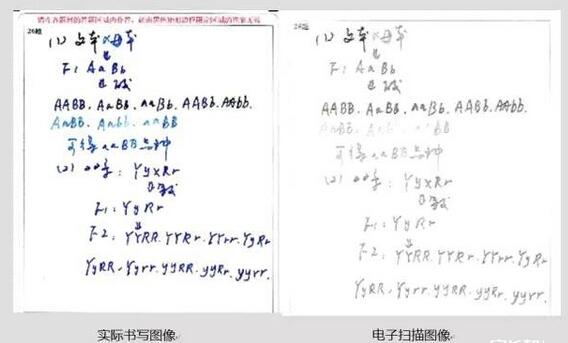 请在各题目的答题区域内作答,超出黑色矩形边框限定区域的答案无效
26题
(1) 父本 × 母本
F1 AaBb
AABB. AaBB. aaBb. AABb. AAbb.
AaBB. Aabb. aaBB
可得 aaBB品种
(2)
: YyxRr
F1: YyRr
F2: YYRR. YYRr. YYrr. YyRr
YyRR. Yyrr. yyRR. yyRr. yyrr.
26题
(1) 父本 × 母本
F1 AaBb
AABB. AaBB. aaBb. AABb. AAbb.
AaBB. Aabb. aaBB
可得 aaBB品种
(2)
: YyxRr
F1: YyRr
F2: YYRR. YYRr. YYrr. YyRr
YyRR. Yyrr. yyRR. yyRr. yyrr.
实际书写图像
电子扫描图像